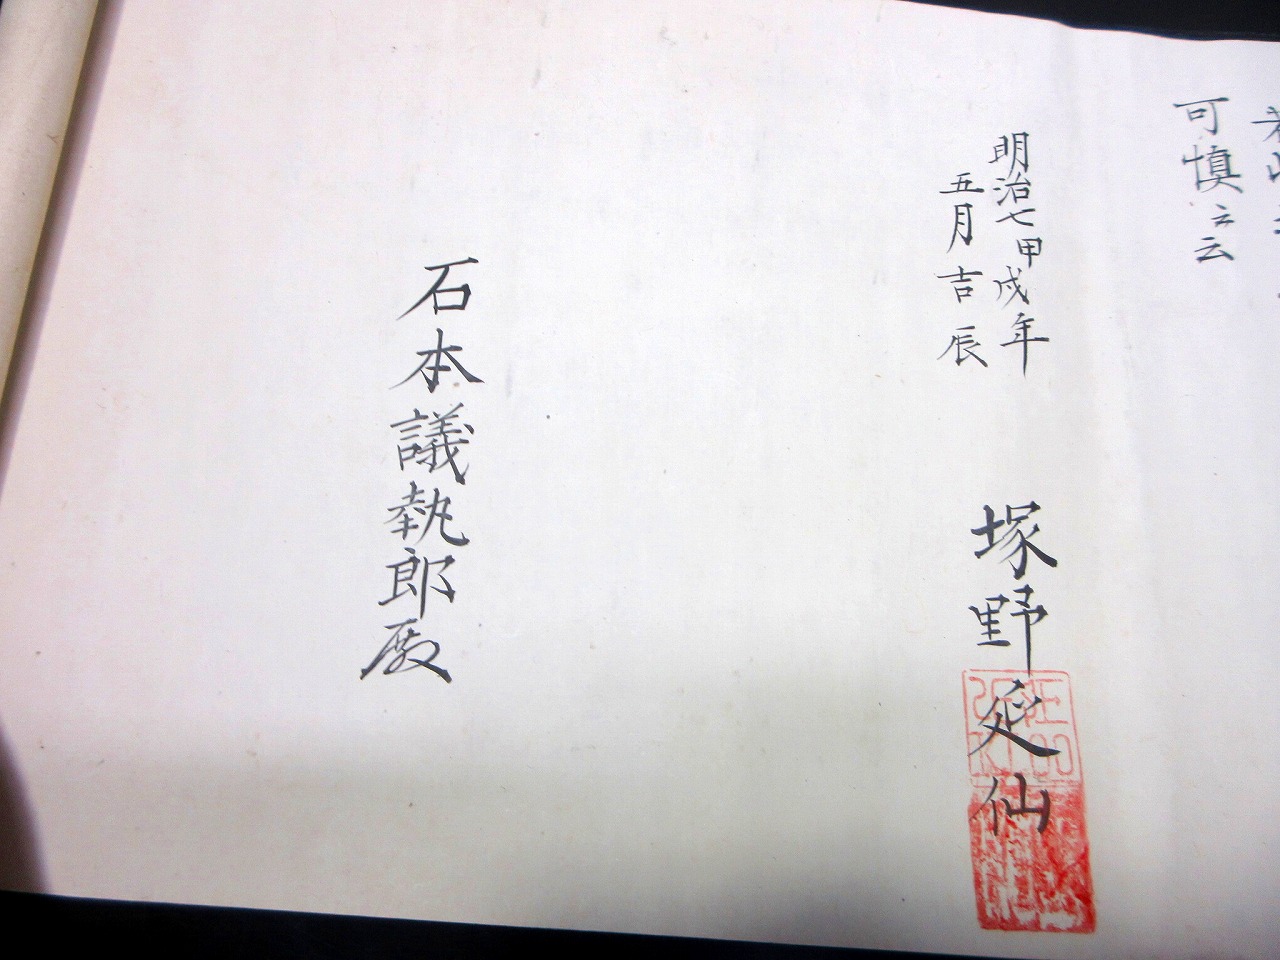 可慎云云
明治七甲戌年
五月吉辰
塚野延仙
石本議執郎殿